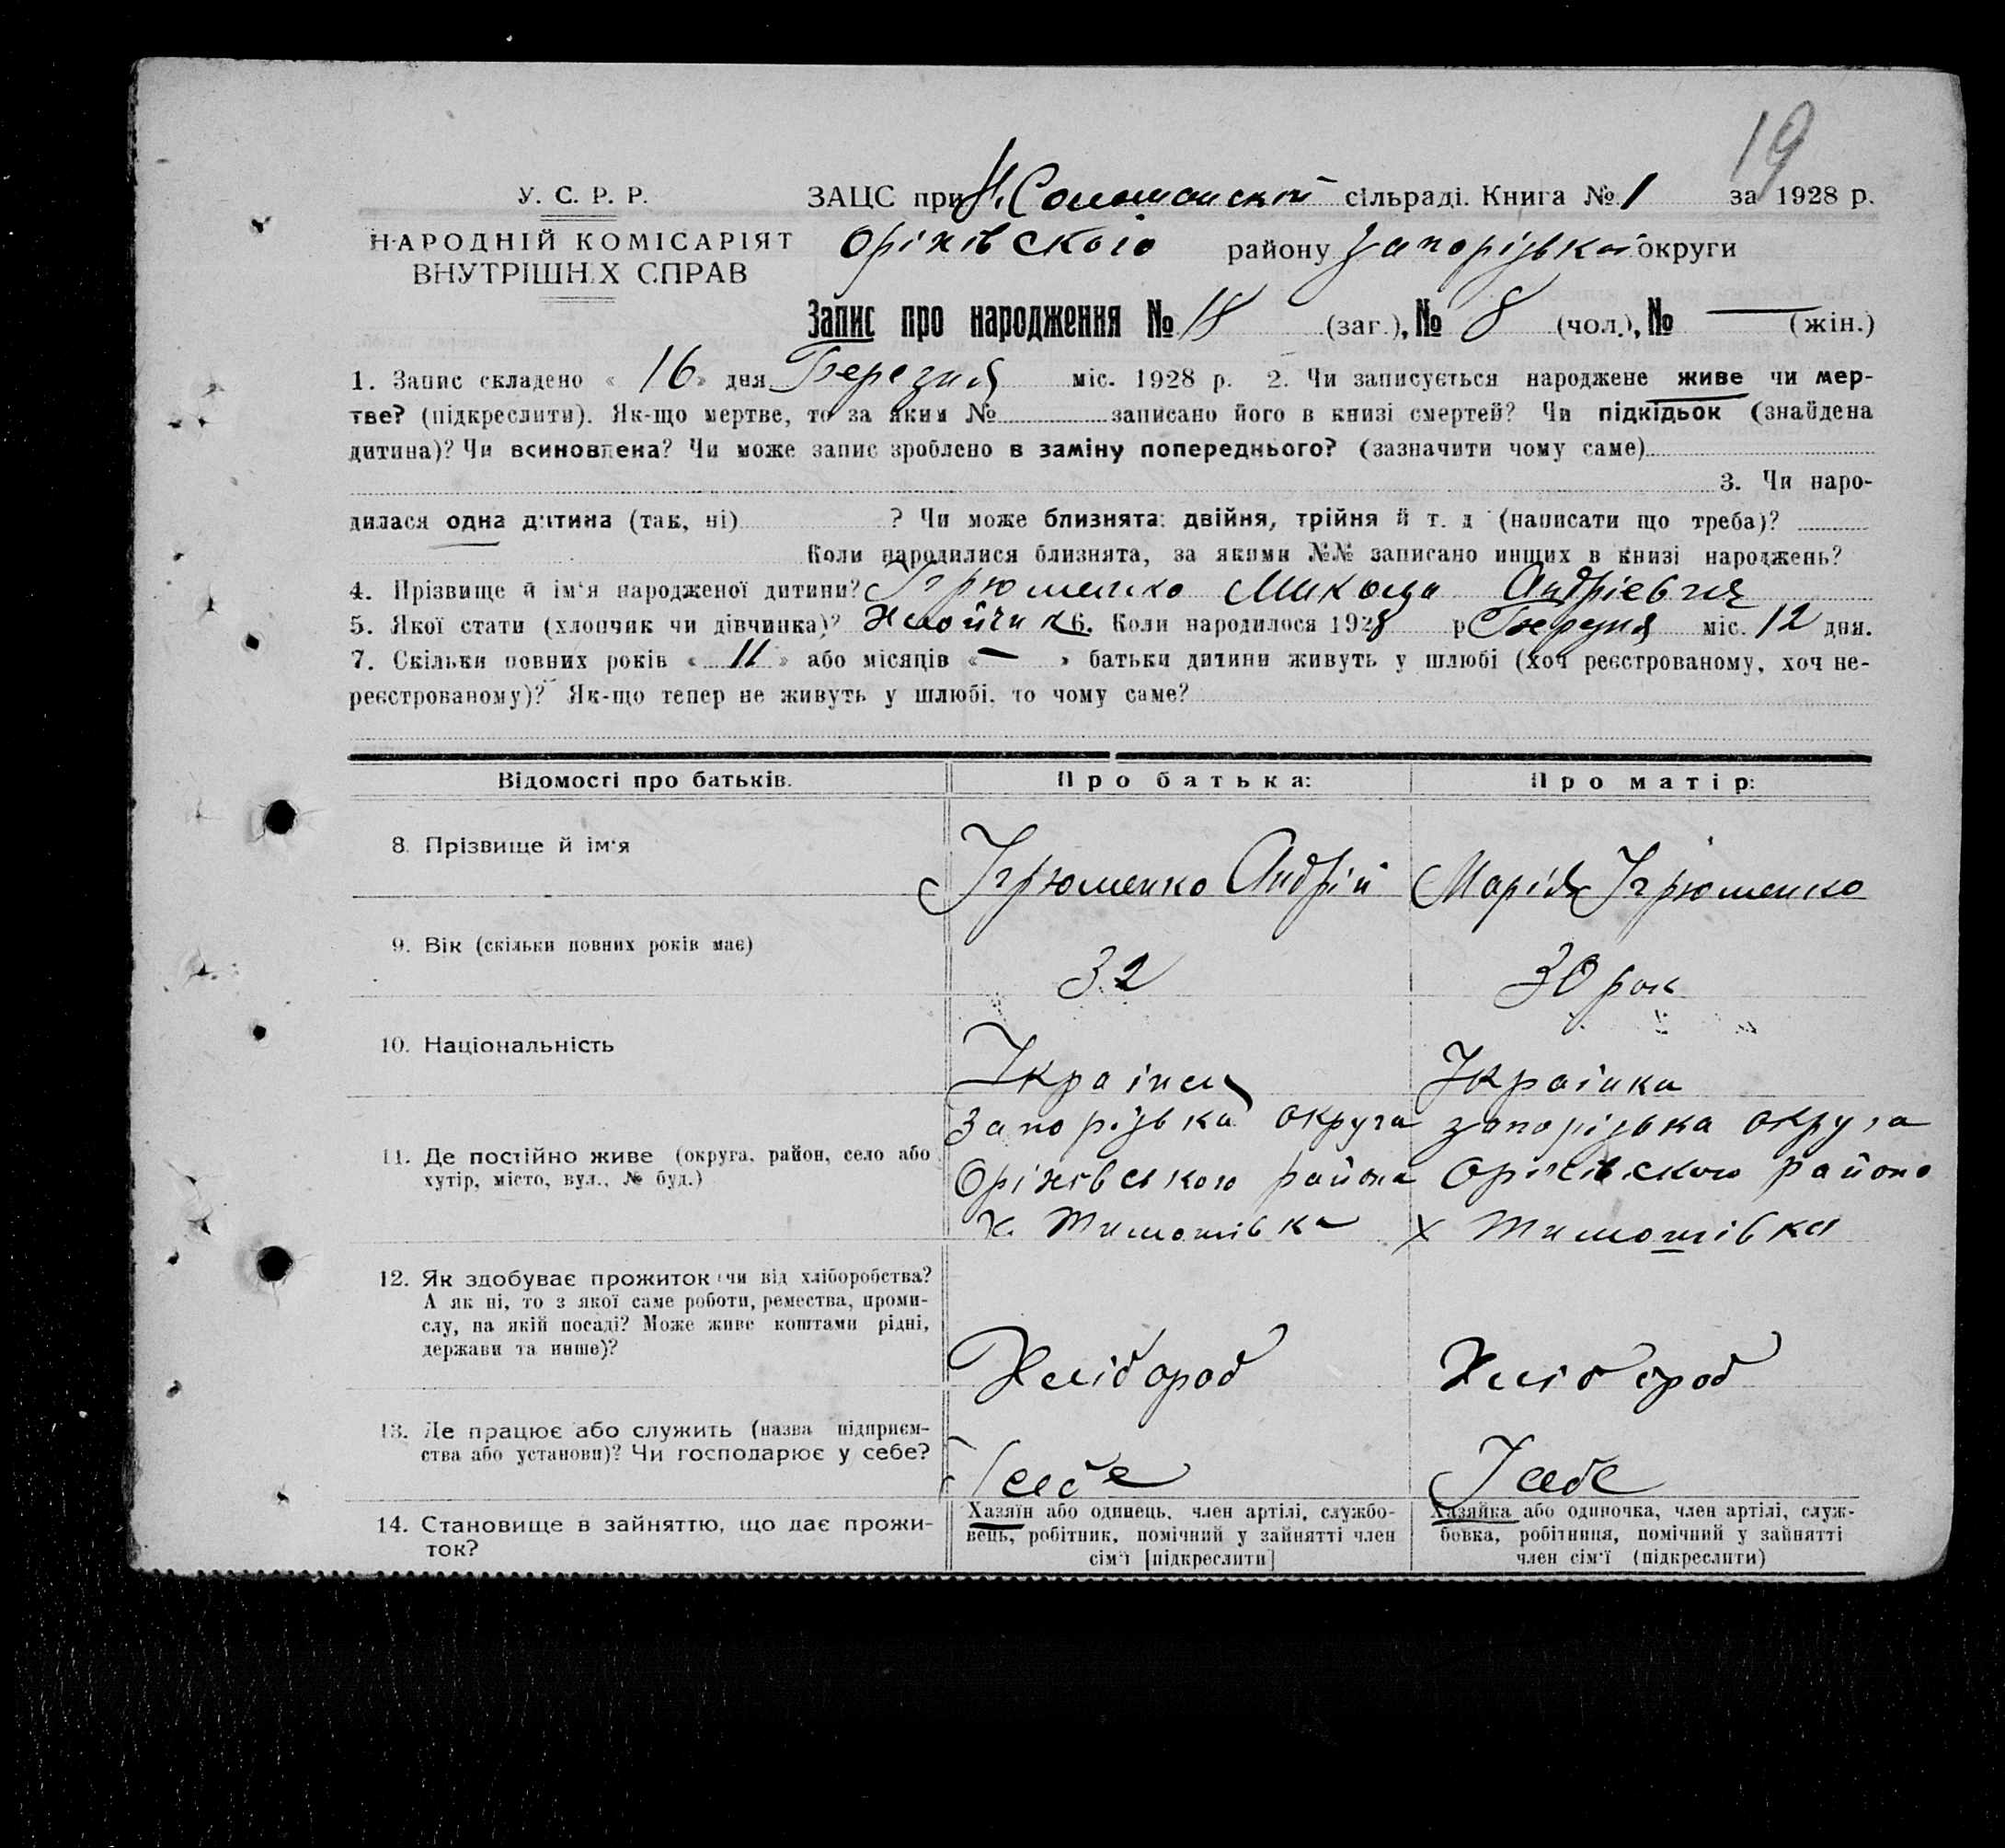 19
У. С. Р. Р.
ЗАЦС при сільраді. Книга № 1 за 1928 р.
НАРОДНІЙ КОМІСАРІЯТ
ВНУТРІШНІХ СПРАВ
Оріхівского району Запорізької округи
Запис про народження № 18 (заг.), № 8 (чол.), № — (жін.)
1. Запис складено « 16 » дня Березня міс. 1928 р. 2. Чи записується народжене живе чи мер-
тве? (підкреслити). Як-що мертве, то за яким № записано його в книзі смертей? Чи підкідьок (знайдена
дитина)? Чи всиновлена? Чи може запис зроблено в заміну попереднього? (зазначити чому саме)
3. Чи наро-
дилася одна дитина (так, ні) ? Чи може близнята: двійня, трійня й т. д (написати що треба)?
Коли народилися близнята, за якими №№ записано инщих в книзі народжень?
4. Прізвище й ім'я народженої дитини? Микола Андріевич
5. Якої стати (хлопчик чи дівчинка)? Хлопчик 6. Коли народилося 1928 р Березня міс. 12 дня.
7. Скільки повних років « 11 » або місяців « — » батьки дитини живуть у шлюбі (хоч реєстрованому, хоч не-
реєстрованому)? Як-що тепер не живуть у шлюбі, то чому саме?
Відомості про батьків. Про батька: Про матір:
8. Прізвище й ім'я
Андрій Марія
9. Вік (скільки повних років має)
32 30 рок
10. Національність
Українец Українка
Запорізька округа запорізька округа
11. Де постійно живе (округа, район, село або
хутір, місто, вул., № буд.)
Оріхівського района Оріхівского района
х. Тимошівка х Тимошівка
12. Як здобуває прожиток (чи від хліборобства?
А як ні, то з якої саме роботи, ремества, проми-
слу, на якій посаді? Може живе коштами рідні,
держави та инше)?
Хлібороб Хлібороб
13. Де працює або служить (назва підприєм-
ства або установи)? Чи господарює у себе?
У себе У себе
14. Становище в зайняттю, що дає прожи-
ток?
Хазяїн або одинець, член артілі, службо-
вець, робітник, помічний у зайнятті член
сім'ї [підкреслити]
Хазяйка або одиночка, член артілі, служ-
бовка, робітниця, помічний у зайнятті
член сім'ї (підкреслити)